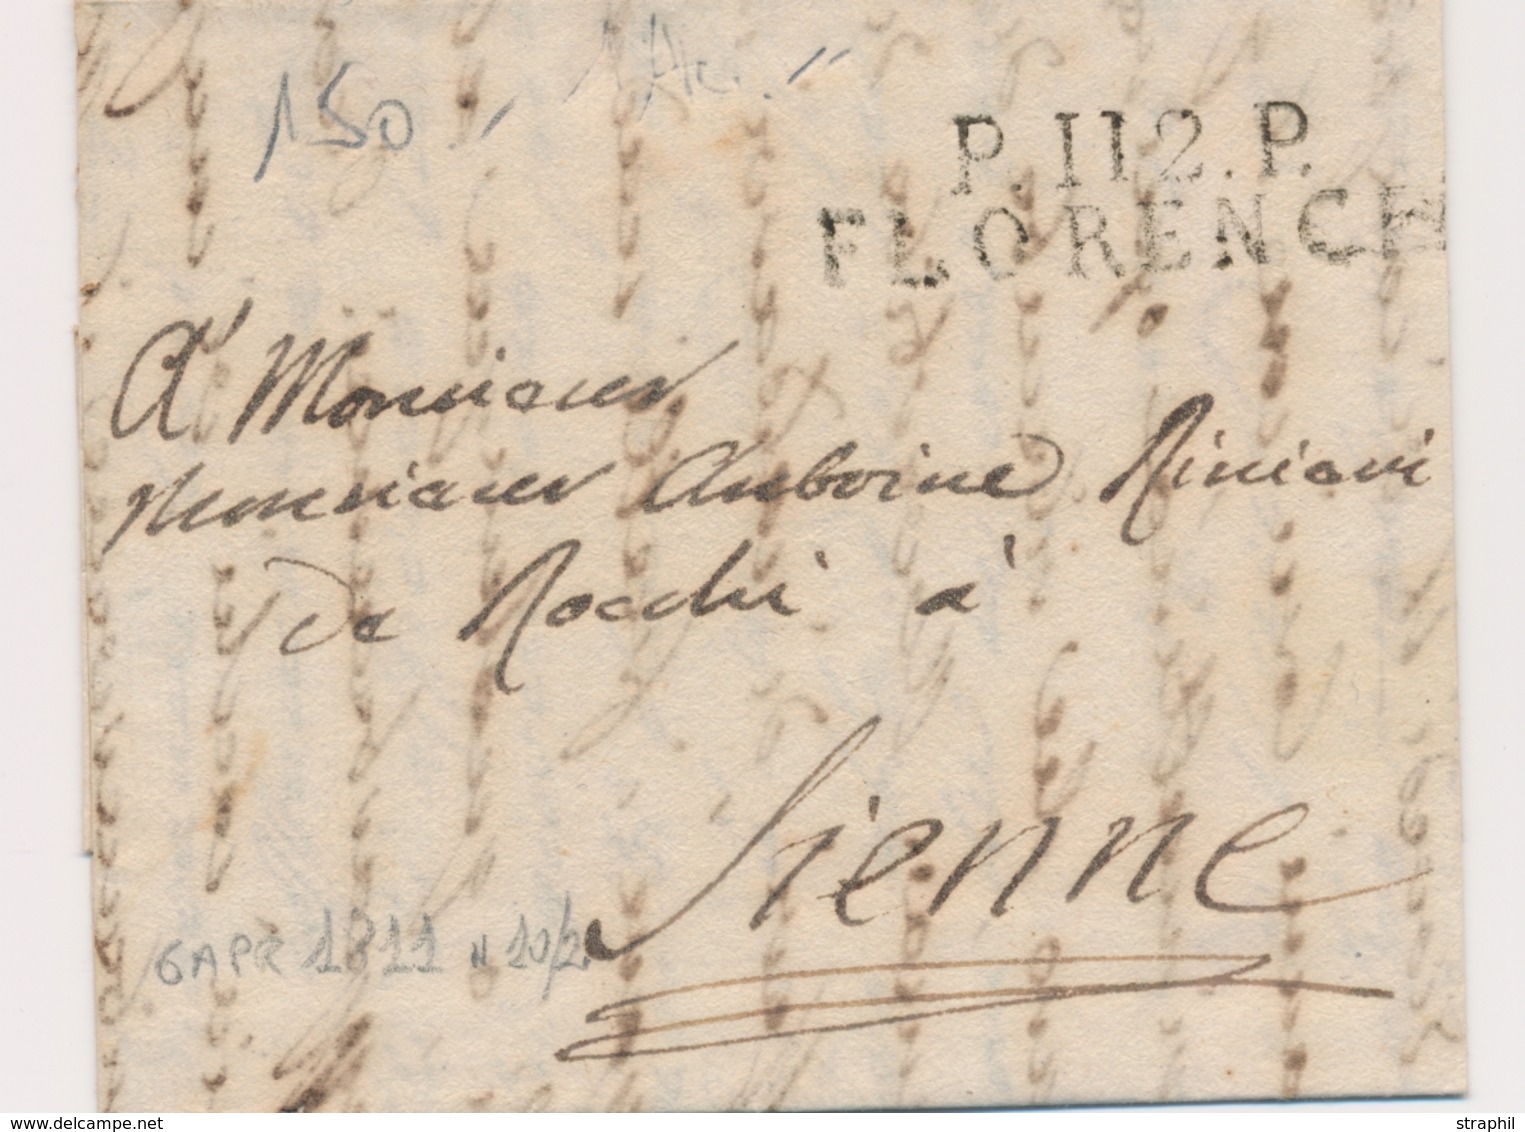 150
P.112.P.
FLORENCE
A Monsieur
Monsieur Antoine
de Rocchi à
Sienne
6 APR 1811 N 10/2
www.delcampe.net
straphil